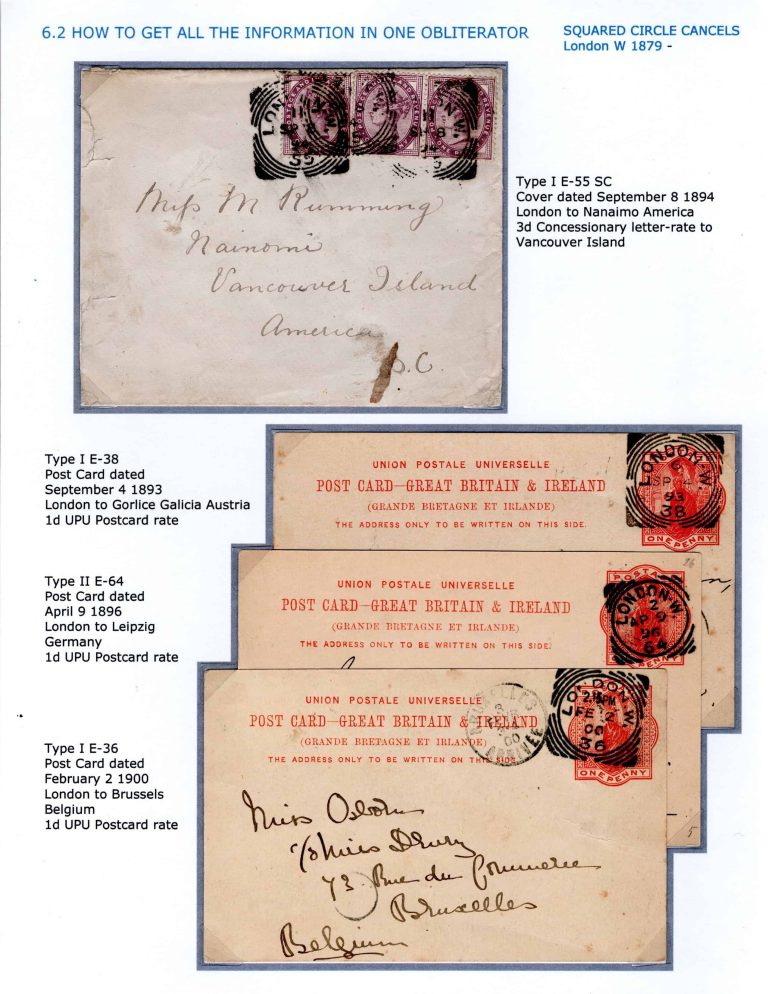 6.2 HOW TO GET ALL THE INFORMATION IN ONE OBLITERATOR
SQUARED CIRCLE CANCELS
London W 1879 -
LONDON.W.
11
SP 8
94
55
LONDON.W.
11
SP 8
94
Type I E-55 SC
Cover dated September 8 1894
London to Nanaimo America
3d Concessionary letter-rate to
Vancouver Island
Miss M Rumming
Nainomi
Vancouver Island
America
B.C.
Type I E-38
Post Card dated
September 4 1893
London to Gorlice Galicia Austria
1d UPU Postcard rate
UNION POSTALE UNIVERSELLE
POST CARD—GREAT BRITAIN & IRELAND
(GRANDE BRETAGNE ET IRLANDE)
THE ADDRESS ONLY TO BE WRITTEN ON THIS SIDE.
LONDON.W.
SP 4
93
38
ONE PENNY
Type II E-64
Post Card dated
April 9 1896
London to Leipzig
Germany
1d UPU Postcard rate
UNION POSTALE UNIVERSELLE
POST CARD—GREAT BRITAIN & IRELAND
(GRANDE BRETAGNE ET IRLANDE)
THE ADDRESS ONLY TO BE WRITTEN ON THIS SIDE.
POSTAGE
LONDON.W.
2
AP 9
96
64
PENNY
26
Type I E-36
Post Card dated
February 2 1900
London to Brussels
Belgium
1d UPU Postcard rate
UNION POSTALE UNIVERSELLE
POST CARD—GREAT BRITAIN & IRELAND
(GRANDE BRETAGNE ET IRLANDE)
THE ADDRESS ONLY TO BE WRITTEN ON THIS SIDE.
BRUXELLES
ARRIVEE
LONDON.W
FE 2
00
36
ONE PENNY
Miss Osborn
c/o Miss Drury
73 Rue du Commerce
Bruxelles
Belgium
5